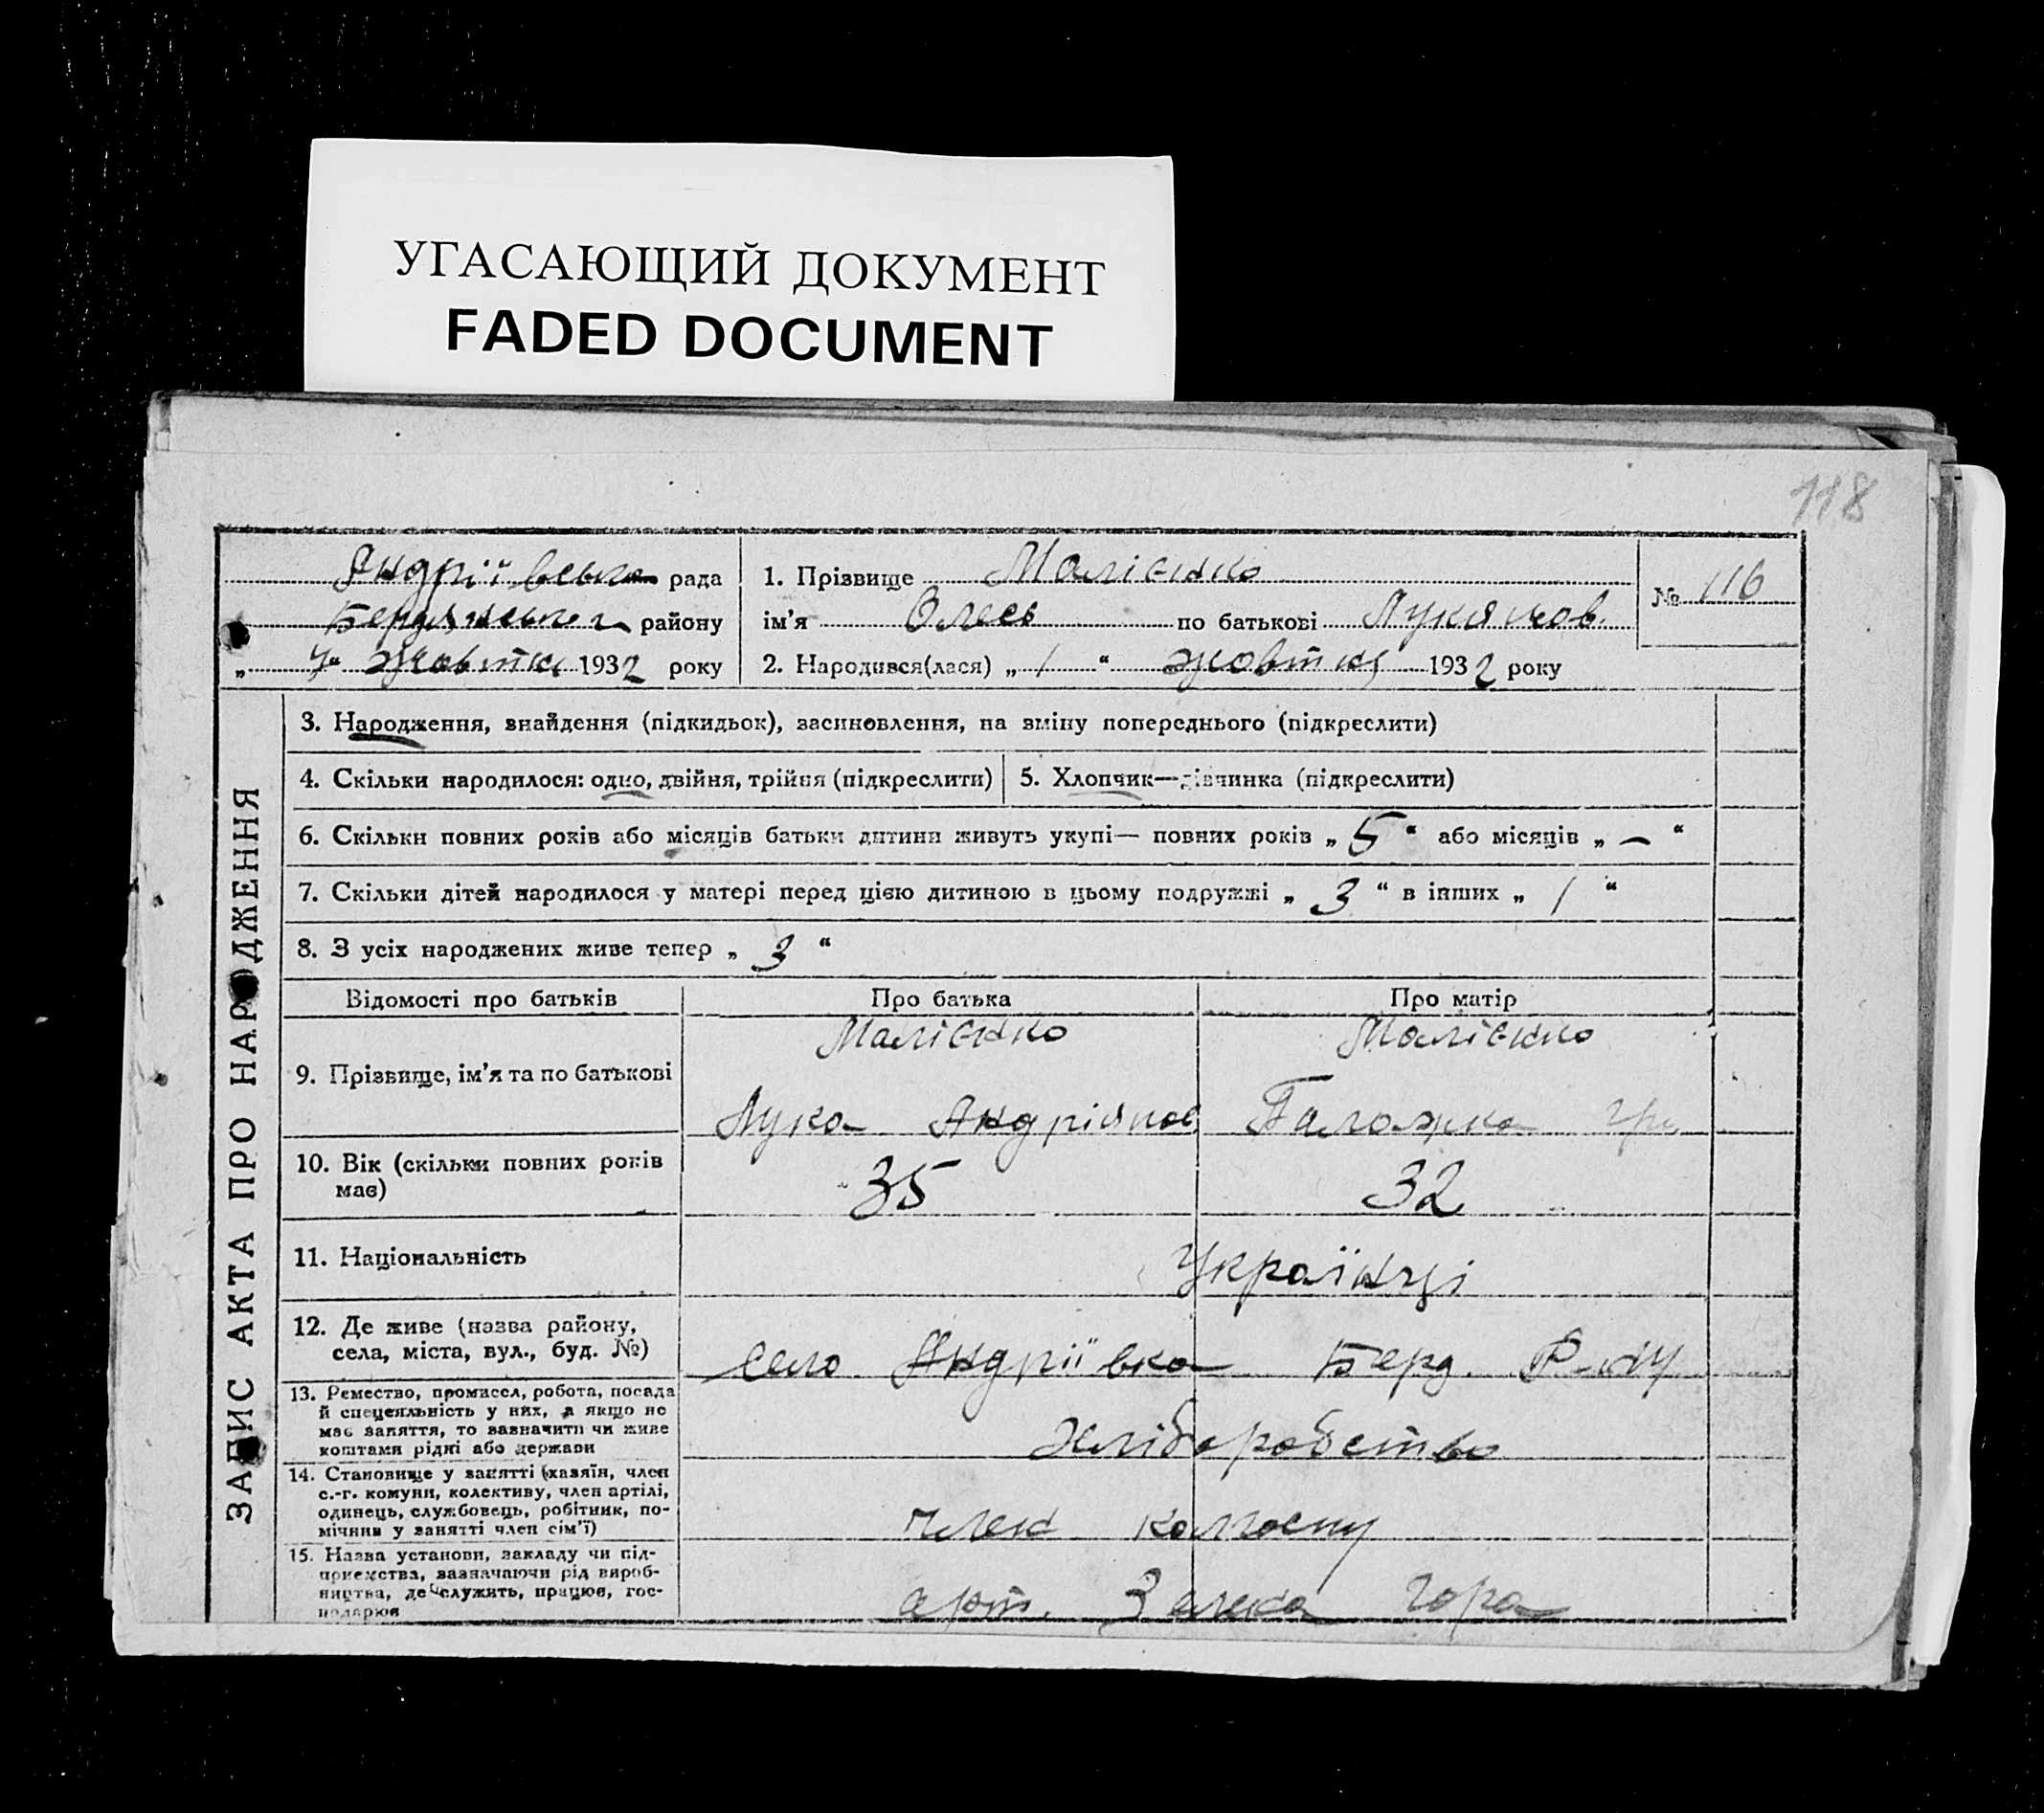 УГАСАЮЩИЙ ДОКУМЕНТ
FADED DOCUMENT
118
Андріївська рада
Бердянського району
„ 7 “ Жовтня 1932 року
1. Прізвище Малієнко
№ 116
ім’я Олесь по батькові Лукянов.
2. Народився(лася) „ 1 “ жовтня 1932 року
ЗАПИС АКТА ПРО НАРОДЖЕННЯ
3. Народження, знайдення (підкидьок), засиновлення, на зміну попереднього (підкреслити)
4. Скільки народилося: одно, двійня, трійня (підкреслити)
5. Хлопчик—дівчинка (підкреслити)
6. Скільки повних років або місяців батьки дитини живуть укупі— повних років „ 5 “ або місяців „ — “
7. Скільки дітей народилося у матері перед цією дитиною в цьому подружжі „ 3 “ в інших „ 1 “
8. З усіх народжених живе тепер „ 3 “
Відомості про батьків Про батька Про матір
9. Прізвище, ім’я та по батькові
Малієнко Малієнко
Лука Андріянов Палажка Гри
10. Вік (скільки повних років має)
35 32
11. Національність
Українці
12. Де живе (назва району,
села, міста, вул., буд. №)
село Андріївка Берд. Р-ну
13. Ремество, промисел, робота, посада
й спецеяльність у них, а якщо не
має заняття, то зазначити чи живе
коштами рідні або держави
Хліборобство
14. Становище у занятті (хазяїн, член
с.-г. комуни, колективу, член артілі,
одинець, службовець, робітник, по-
мічник у занятті член сім’ї)
член колгоспу
15. Назва установи, закладу чи під-
приємства, зазначаючи рід вироб-
ництва, де служить, працює, гос-
подарює
арт. гора